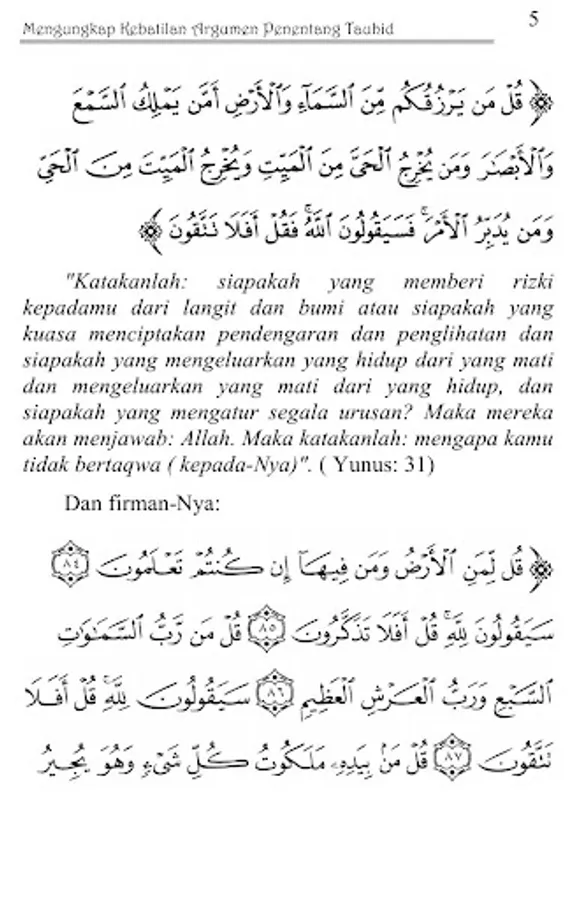 Mengungkap Kebatilan Argumen Penentang Tauhid
5
﴿ قُلْ مَن يَرْزُقُكُم مِّنَ ٱلسَّمَآءِ وَٱلْأَرْضِ أَمَّن يَمْلِكُ ٱلسَّمْعَ
وَٱلْأَبْصَٰرَ وَمَن يُخْرِجُ ٱلْحَىَّ مِنَ ٱلْمَيِّتِ وَيُخْرِجُ ٱلْمَيِّتَ مِنَ ٱلْحَىِّ
وَمَن يُدَبِّرُ ٱلْأَمْرَ ۚ فَسَيَقُولُونَ ٱللَّهُ ۚ فَقُلْ أَفَلَا تَتَّقُونَ ﴾
"Katakanlah: siapakah yang memberi rizki
kepadamu dari langit dan bumi atau siapakah yang
kuasa menciptakan pendengaran dan penglihatan dan
siapakah yang mengeluarkan yang hidup dari yang mati
dan mengeluarkan yang mati dari yang hidup, dan
siapakah yang mengatur segala urusan? Maka mereka
akan menjawab: Allah. Maka katakanlah: mengapa kamu
tidak bertaqwa ( kepada-Nya)". ( Yunus: 31)
Dan firman-Nya:
﴿ قُل لِّمَنِ ٱلْأَرْضُ وَمَن فِيهَآ إِن كُنتُمْ تَعْلَمُونَ ٨٤
سَيَقُولُونَ لِلَّهِ ۚ قُلْ أَفَلَا تَذَكَّرُونَ ٨٥ قُلْ مَن رَّبُّ ٱلسَّمَٰوَٰتِ
ٱلسَّبْعِ وَرَبُّ ٱلْعَرْشِ ٱلْعَظِيمِ ٨٦ سَيَقُولُونَ لِلَّهِ ۚ قُلْ أَفَلَا
تَتَّقُونَ ٨٧ قُلْ مَنۢ بِيَدِهِۦ مَلَكُوتُ كُلِّ شَىْءٍ وَهُوَ يُجِيرُ